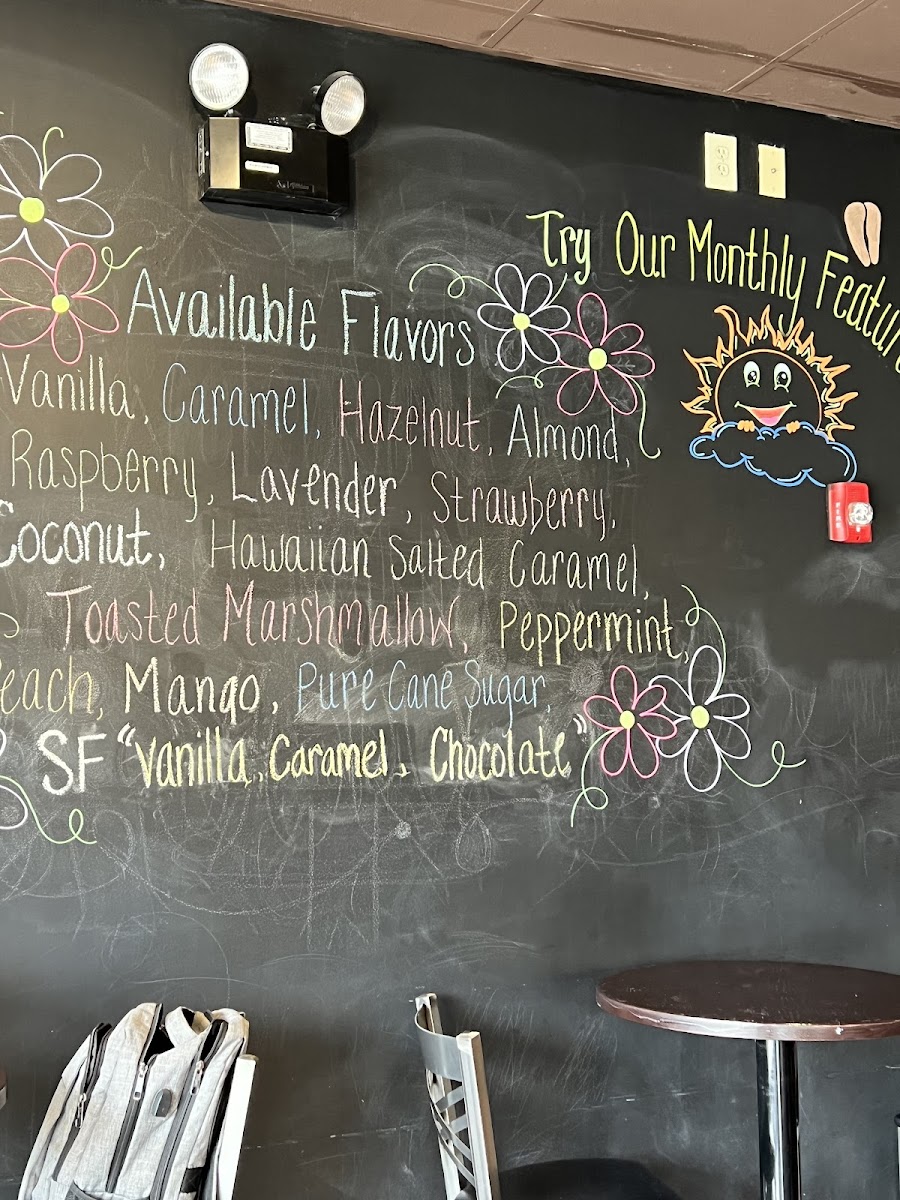 Try Our Monthly Featur
Available Flavors
Vanilla, Caramel, Hazelnut, Almond,
Raspberry, Lavender, Strawberry,
Coconut, Hawaiian Salted Caramel,
Toasted Marshmallow, Peppermint,
each, Mango, Pure Cane Sugar,
SF "Vanilla, Caramel, Chocolate"
FIRE